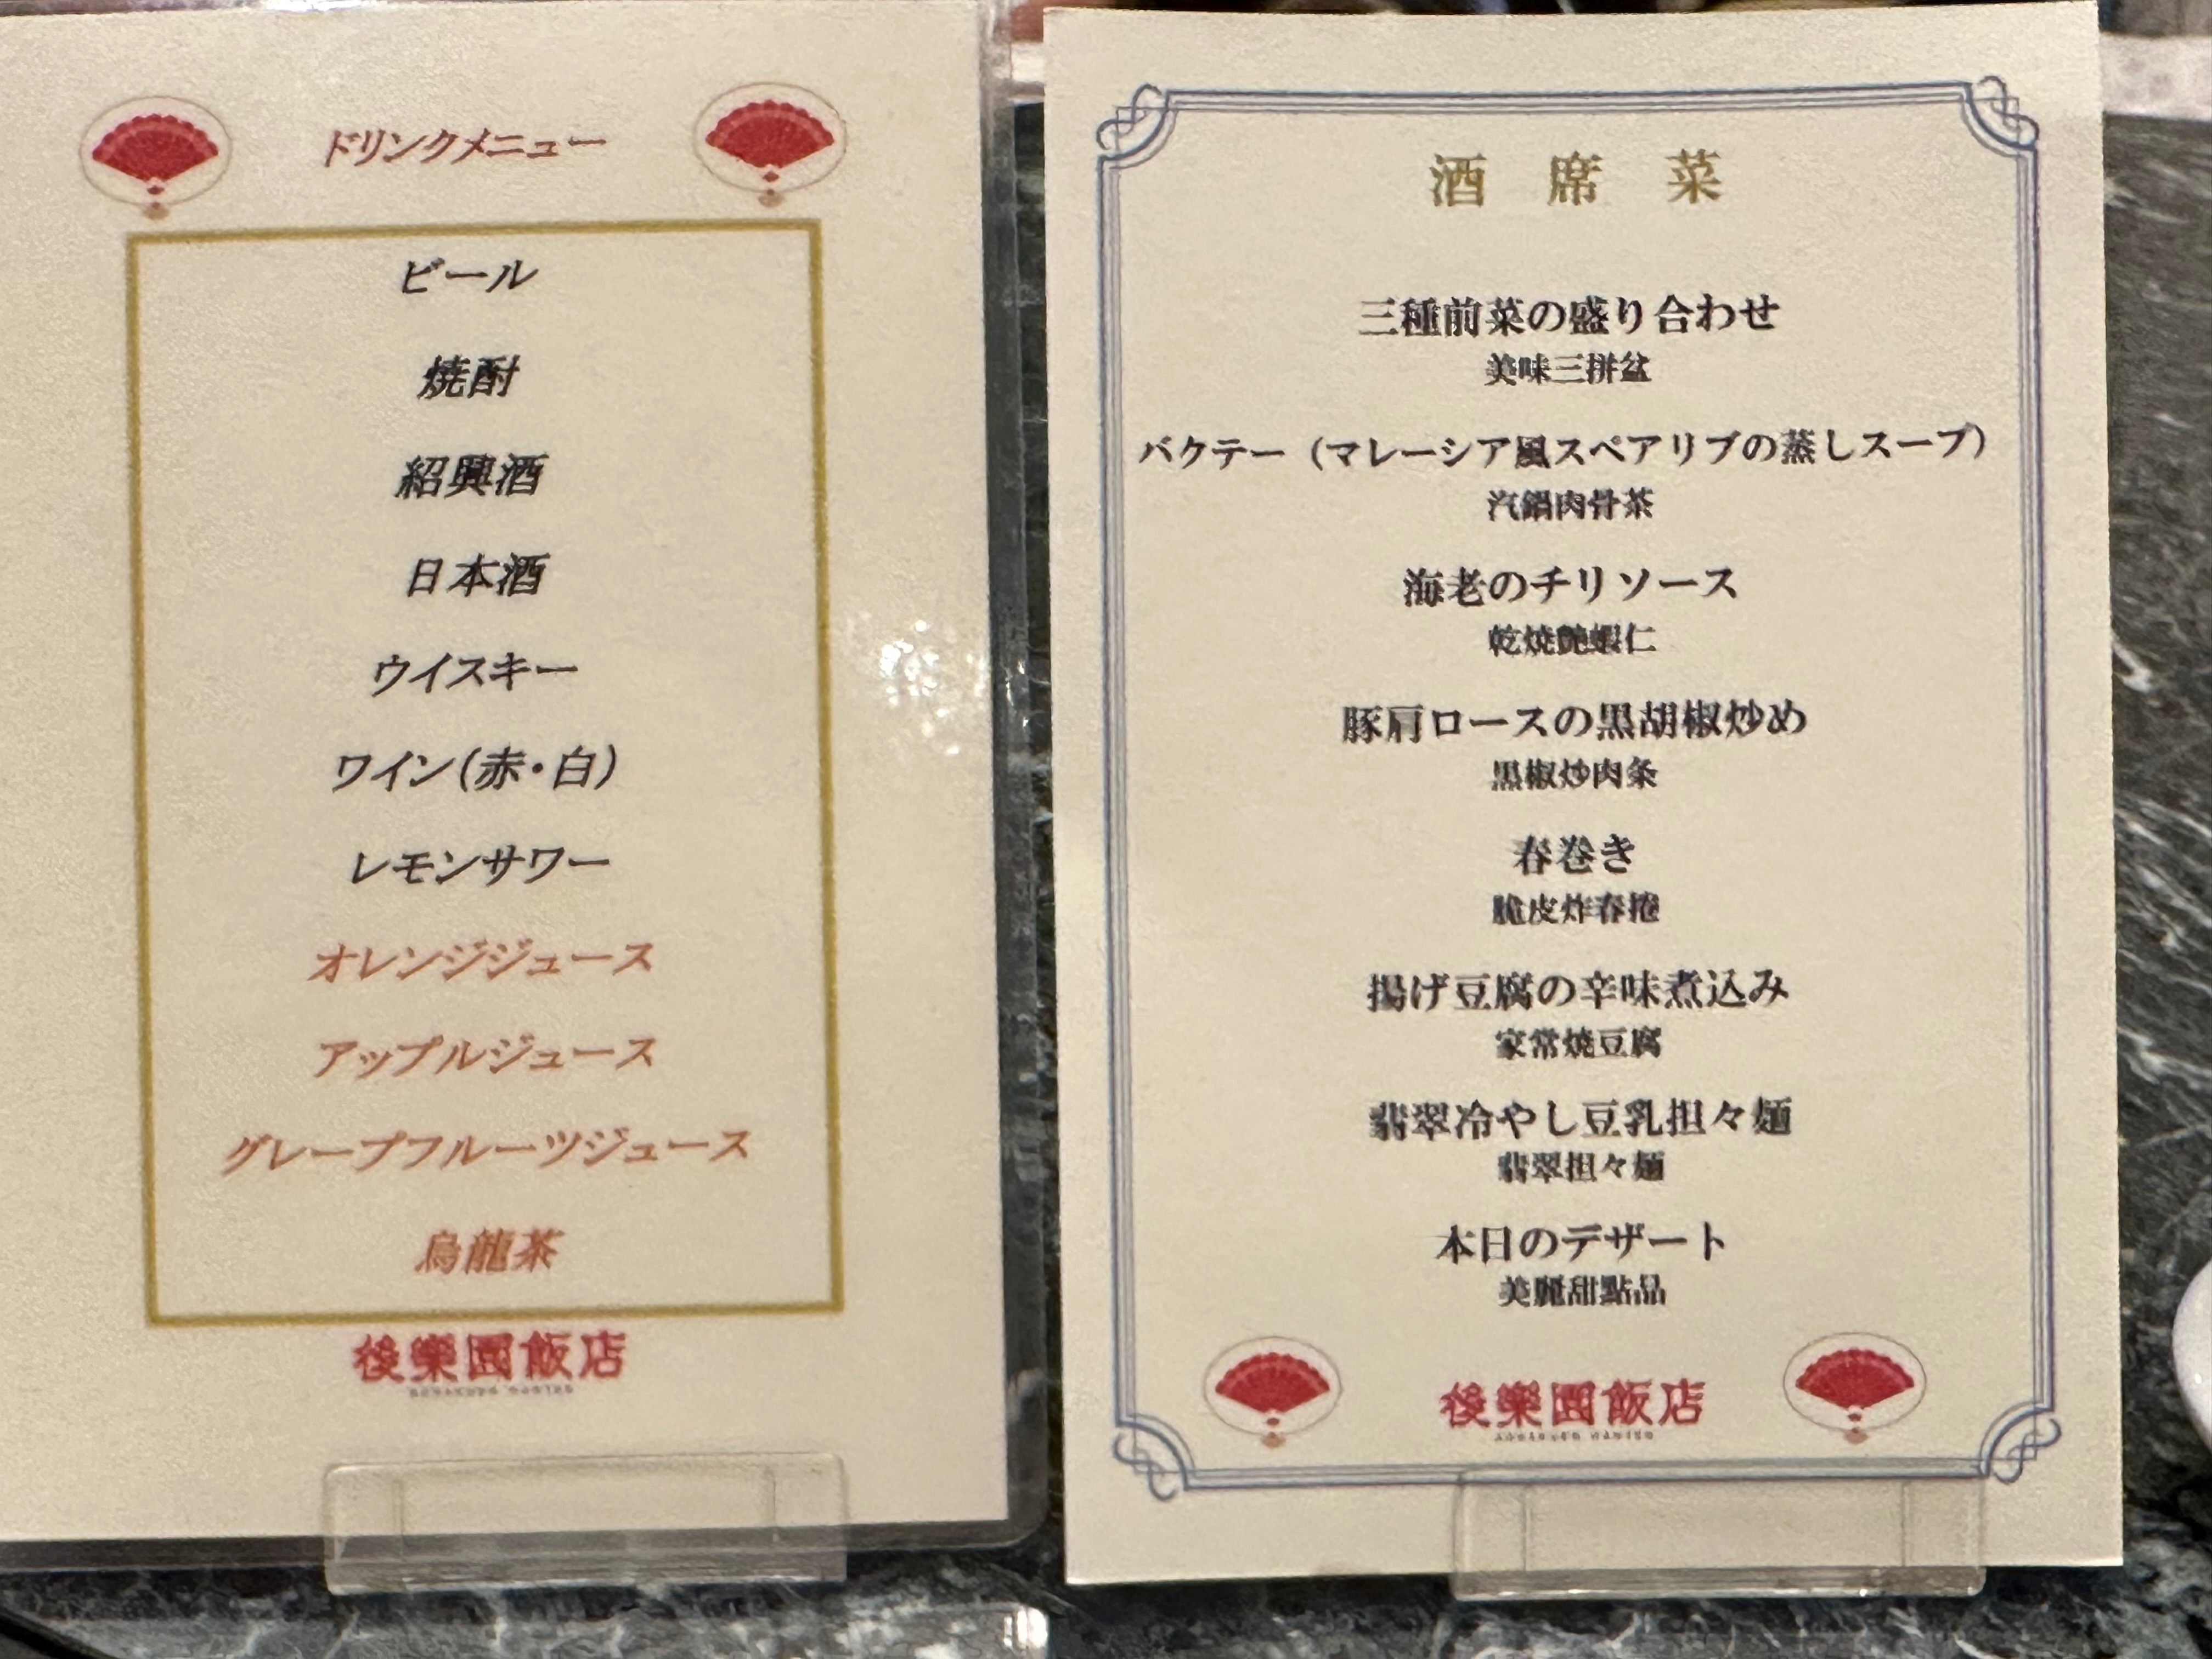 ドリンクメニュー
ビール
焼酎
紹興酒
日本酒
ウイスキー
ワイン(赤・白)
レモンサワー
オレンジジュース
アップルジュース
グレープフルーツジュース
烏龍茶
後樂園飯店
酒席菜
三種前菜の盛り合わせ
美味三拼盆
バクテー（マレーシア風スペアリブの蒸しスープ）
汽鍋肉骨茶
海老のチリソース
乾焼艶蝦仁
豚肩ロースの黒胡椒炒め
黒椒炒肉条
春巻き
脆皮炸春捲
揚げ豆腐の辛味煮込み
家常焼豆腐
翡翠冷やし豆乳担々麺
翡翠担々麺
本日のデザート
美麗甜點品
後樂園飯店